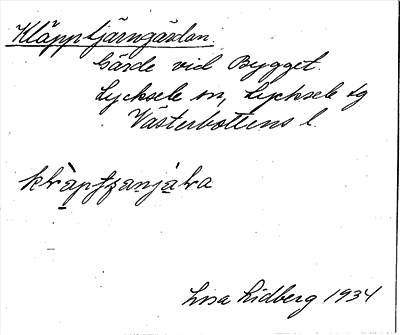 Kläpptjärngärdan.
Gärde vid Bygget.
Lycksele sn, Lycksele lg
Västerbottens l.
Lisa Lidberg 1934